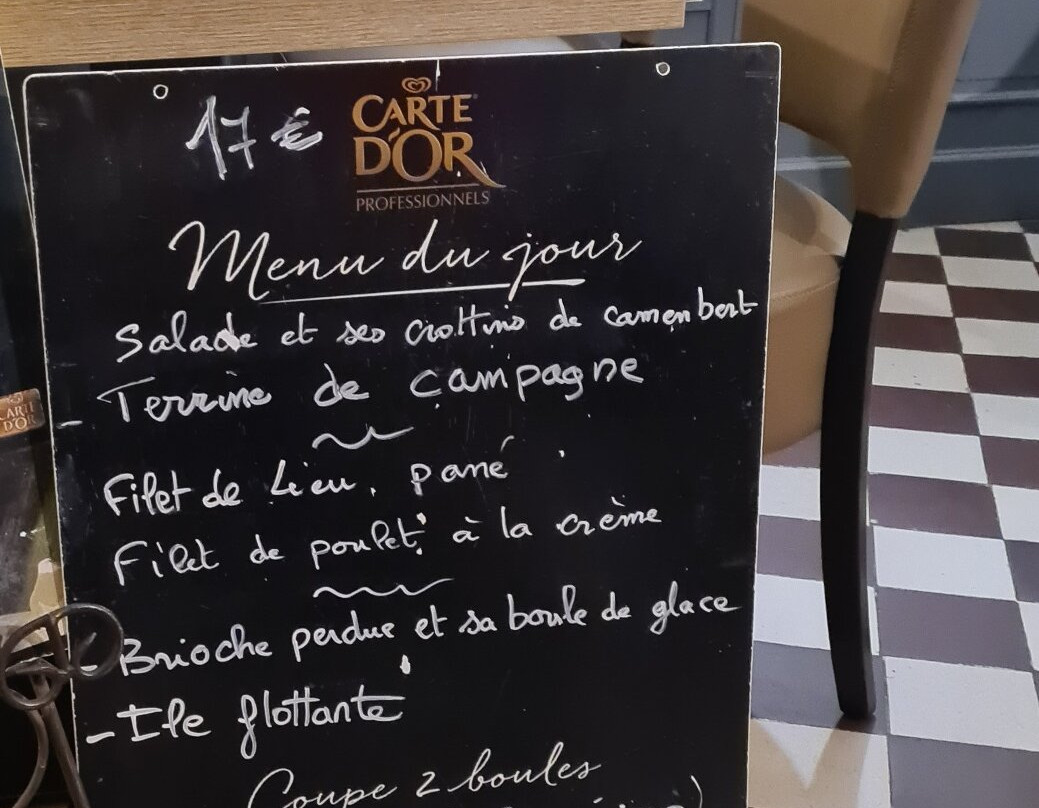 17 €
CARTE
D'OR
PROFESSIONNELS
Menu du jour
Salade et ses crottins de camembert
- Terrine de campagne
Filet de Lieu, pané
Filet de poulet à la crème
- Brioche perdue et sa boule de glace
- Ile flottante
Coupe 2 boules
CARTE
D'OR